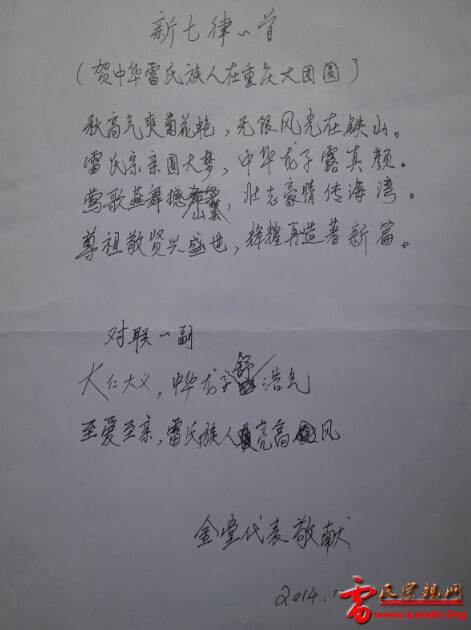 新七律一首
（贺中华雷氏族人在重庆大团圆）
秋高气爽菊花艳，无限风光在铁山。
雷氏宗亲圆大梦，中华龙子露真颜。
莺歌燕舞撼，壮志豪情传海湾。
尊祖敬贤兴盛世，辉煌再造著新篇。
对联一副
大仁大义，中华龙子舒浩气
至爱至亲，雷氏族人亮高风
金堂代表敬献
2014.1
雷氏宗亲网
www.Leisht.Org